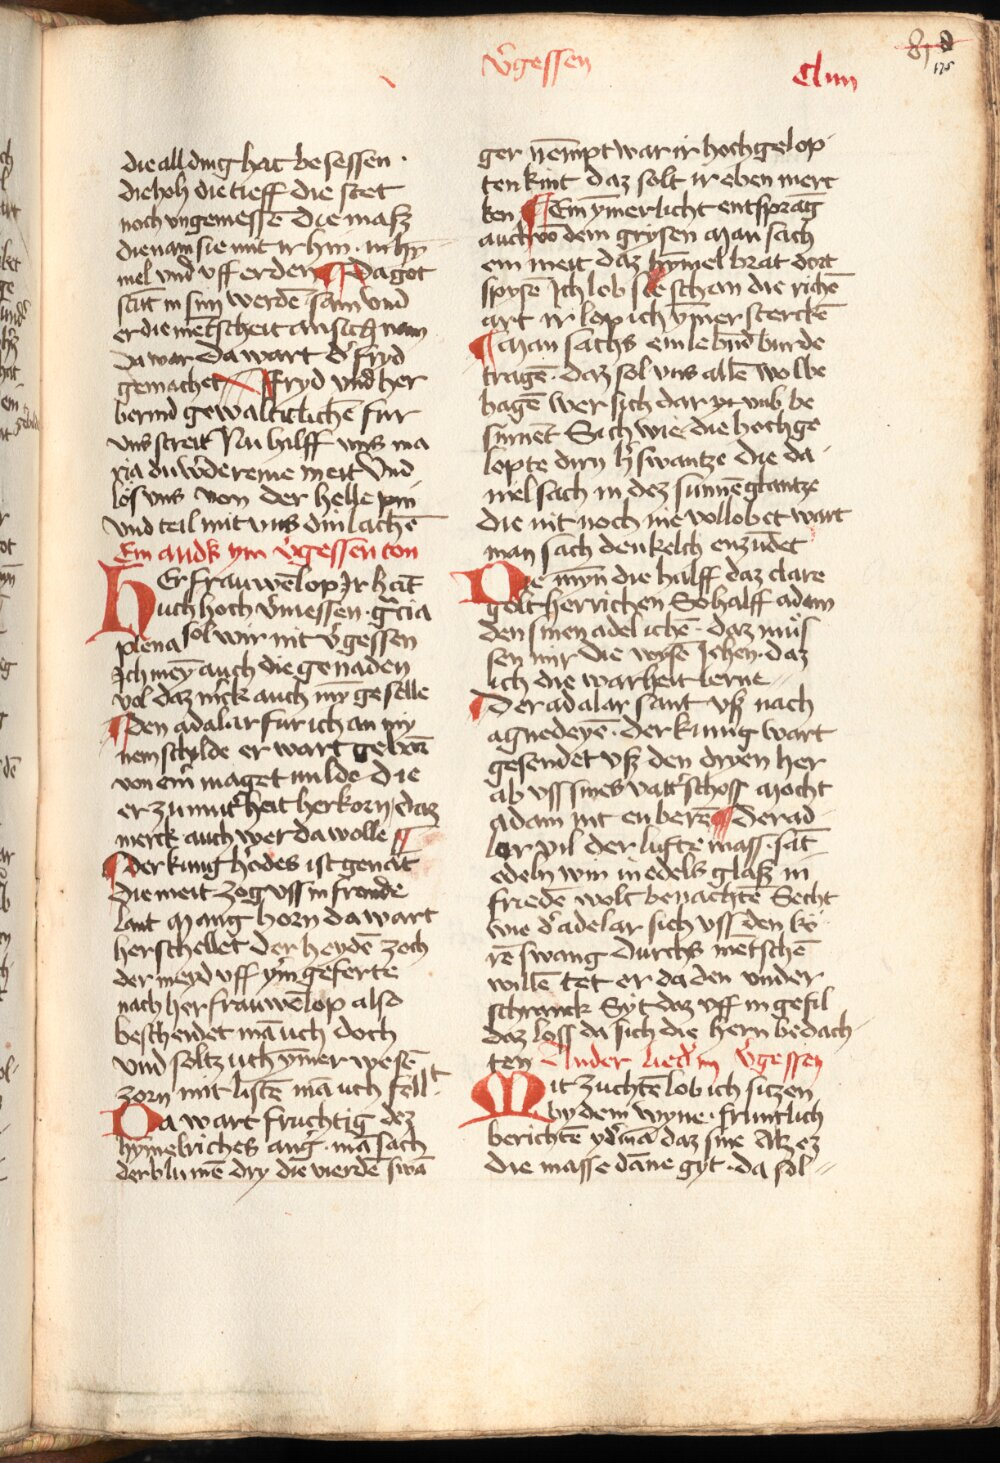 v̓gessen
Clım
818
175
die all ding hat besessen ·
die hoh die tieff die stet
noch vngemessē die masz
die nam sie mit ir hin · in hy
mel vnd vff erden ¶ Da got
satt in sin werdē sam vnd
er die mētscheit an sich nam
Da war da wart d̓ fryd
gemachet ¶ Fryd vnd her
bermd gewalticlichē fur
vns streit Nu hilff vns ma
ria du w̓de reine meit Vnd
lös vns von der helle pin
vnd teil mit vns din lachē
Ein and̓s ym v̓gessen ton
HEr frauwēlop Ir hāt
uch hoch v̓messen · gr̄cia
plena sol wir nit v̓gessen
Ich mey̅ auch die genaden
vol daz m̓ck auch my̅ geselle
¶ Den adalar fur ich an my
nem schilde er wart geborn
von ein̓ maget milde die
er zu mut̓heit herkorn / daz
merck auch wer da wolle ¶
¶ Der kung hodes ist genāt
Die meit zog vss in fremde
lant Mang horn da wart
herschellet Der heydē zoch
der meyd vff ym̄ geferte
nach her frauwēlop also
bescheidet mā uch doch
vnd soltz uch ym̄er wesē
zorn mit listē mā uch fellt ·
Da wart fruchtig dez
hym̄elriches ang̓ · mā sach
der blumē dry die vierdē swā
ger nēmpt war ir hochgelop
ten kint daz solt ir eben merc
ken ¶ Ein ym̄erlicht entsprāg
auch vō dem grysen Man sach
ein meit daz hym̄el brat dort
spysē Ich lob sie schan die richē
art ir lop ich ym̄er sterckē
¶ Man sachs ein lebn̄d burde
tragē · daz sol vns allē wol be
hagē wer sich dar yn vmb be
sinnet Sich wie die hochge
lopte dirn h̓ swantze Die da
niel sach in dez sunnē glantze
die nit noch nie vollobet wart
man sach den kelch enzūdet
Die myn̄ die halff daz clare
golt herrichen So halff adam
den sinen adelichē · daz müs
sen mir die wysē Jehen · daz
lich die warheit lerne
¶ Der adalar sant vsz nach
agnedeyē · der kunig wart
gesendet vsz den dryen her
ab vss sines vatt̓ schoss Mocht
Adam nit enberē ¶ Der ad
lar vil der lufte mass · sāt
edeln win in edels glasz in
friedē wolt benachtē Secht
wie d̓ adelar sich vss den kö
rē swang Durchs mētschē
willē tet er da den vnder
schranck Syt daz vff in gefil
daz loss da sich die hern bedach
ten Ander lied̓ im v̓gessen
Mit zuchtē lob ich sitzen
by dem wyne · fruntlich
berichtē yd̓mā daz sine Alz ez
die masse dāne gyt · da sol